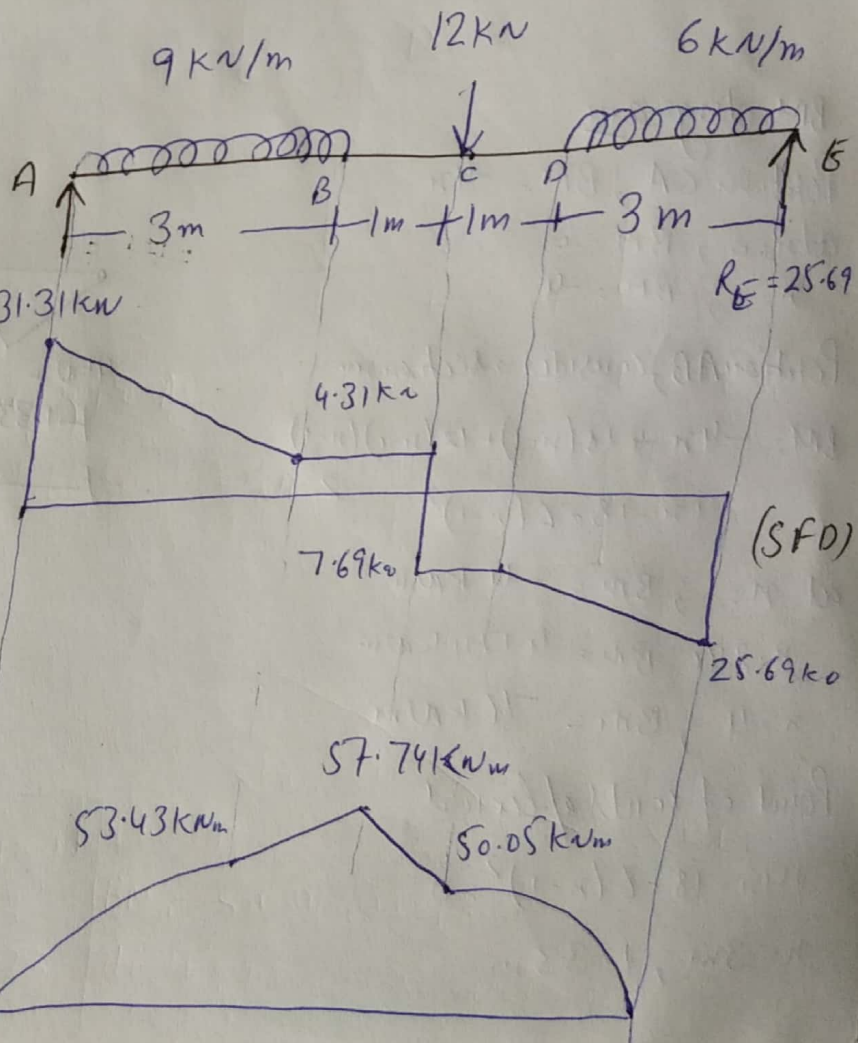 12KN
9 KN/m
6 KN/m
A
B
C
D
E
3m
1m
1m
3m
R_E = 25.69
31.31KN
4.31KN
7.69KN
(SFD)
25.69KN
57.74KNm
53.43KNm
50.05KNm